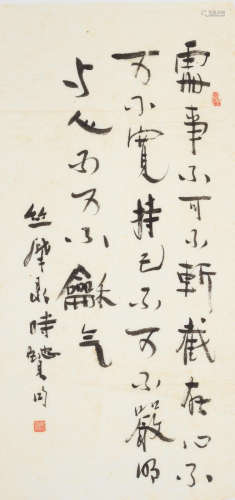 處事不可不斬截存心不
可不寬持己不可不嚴明
与人不可不龢气
竺摩 時賢句